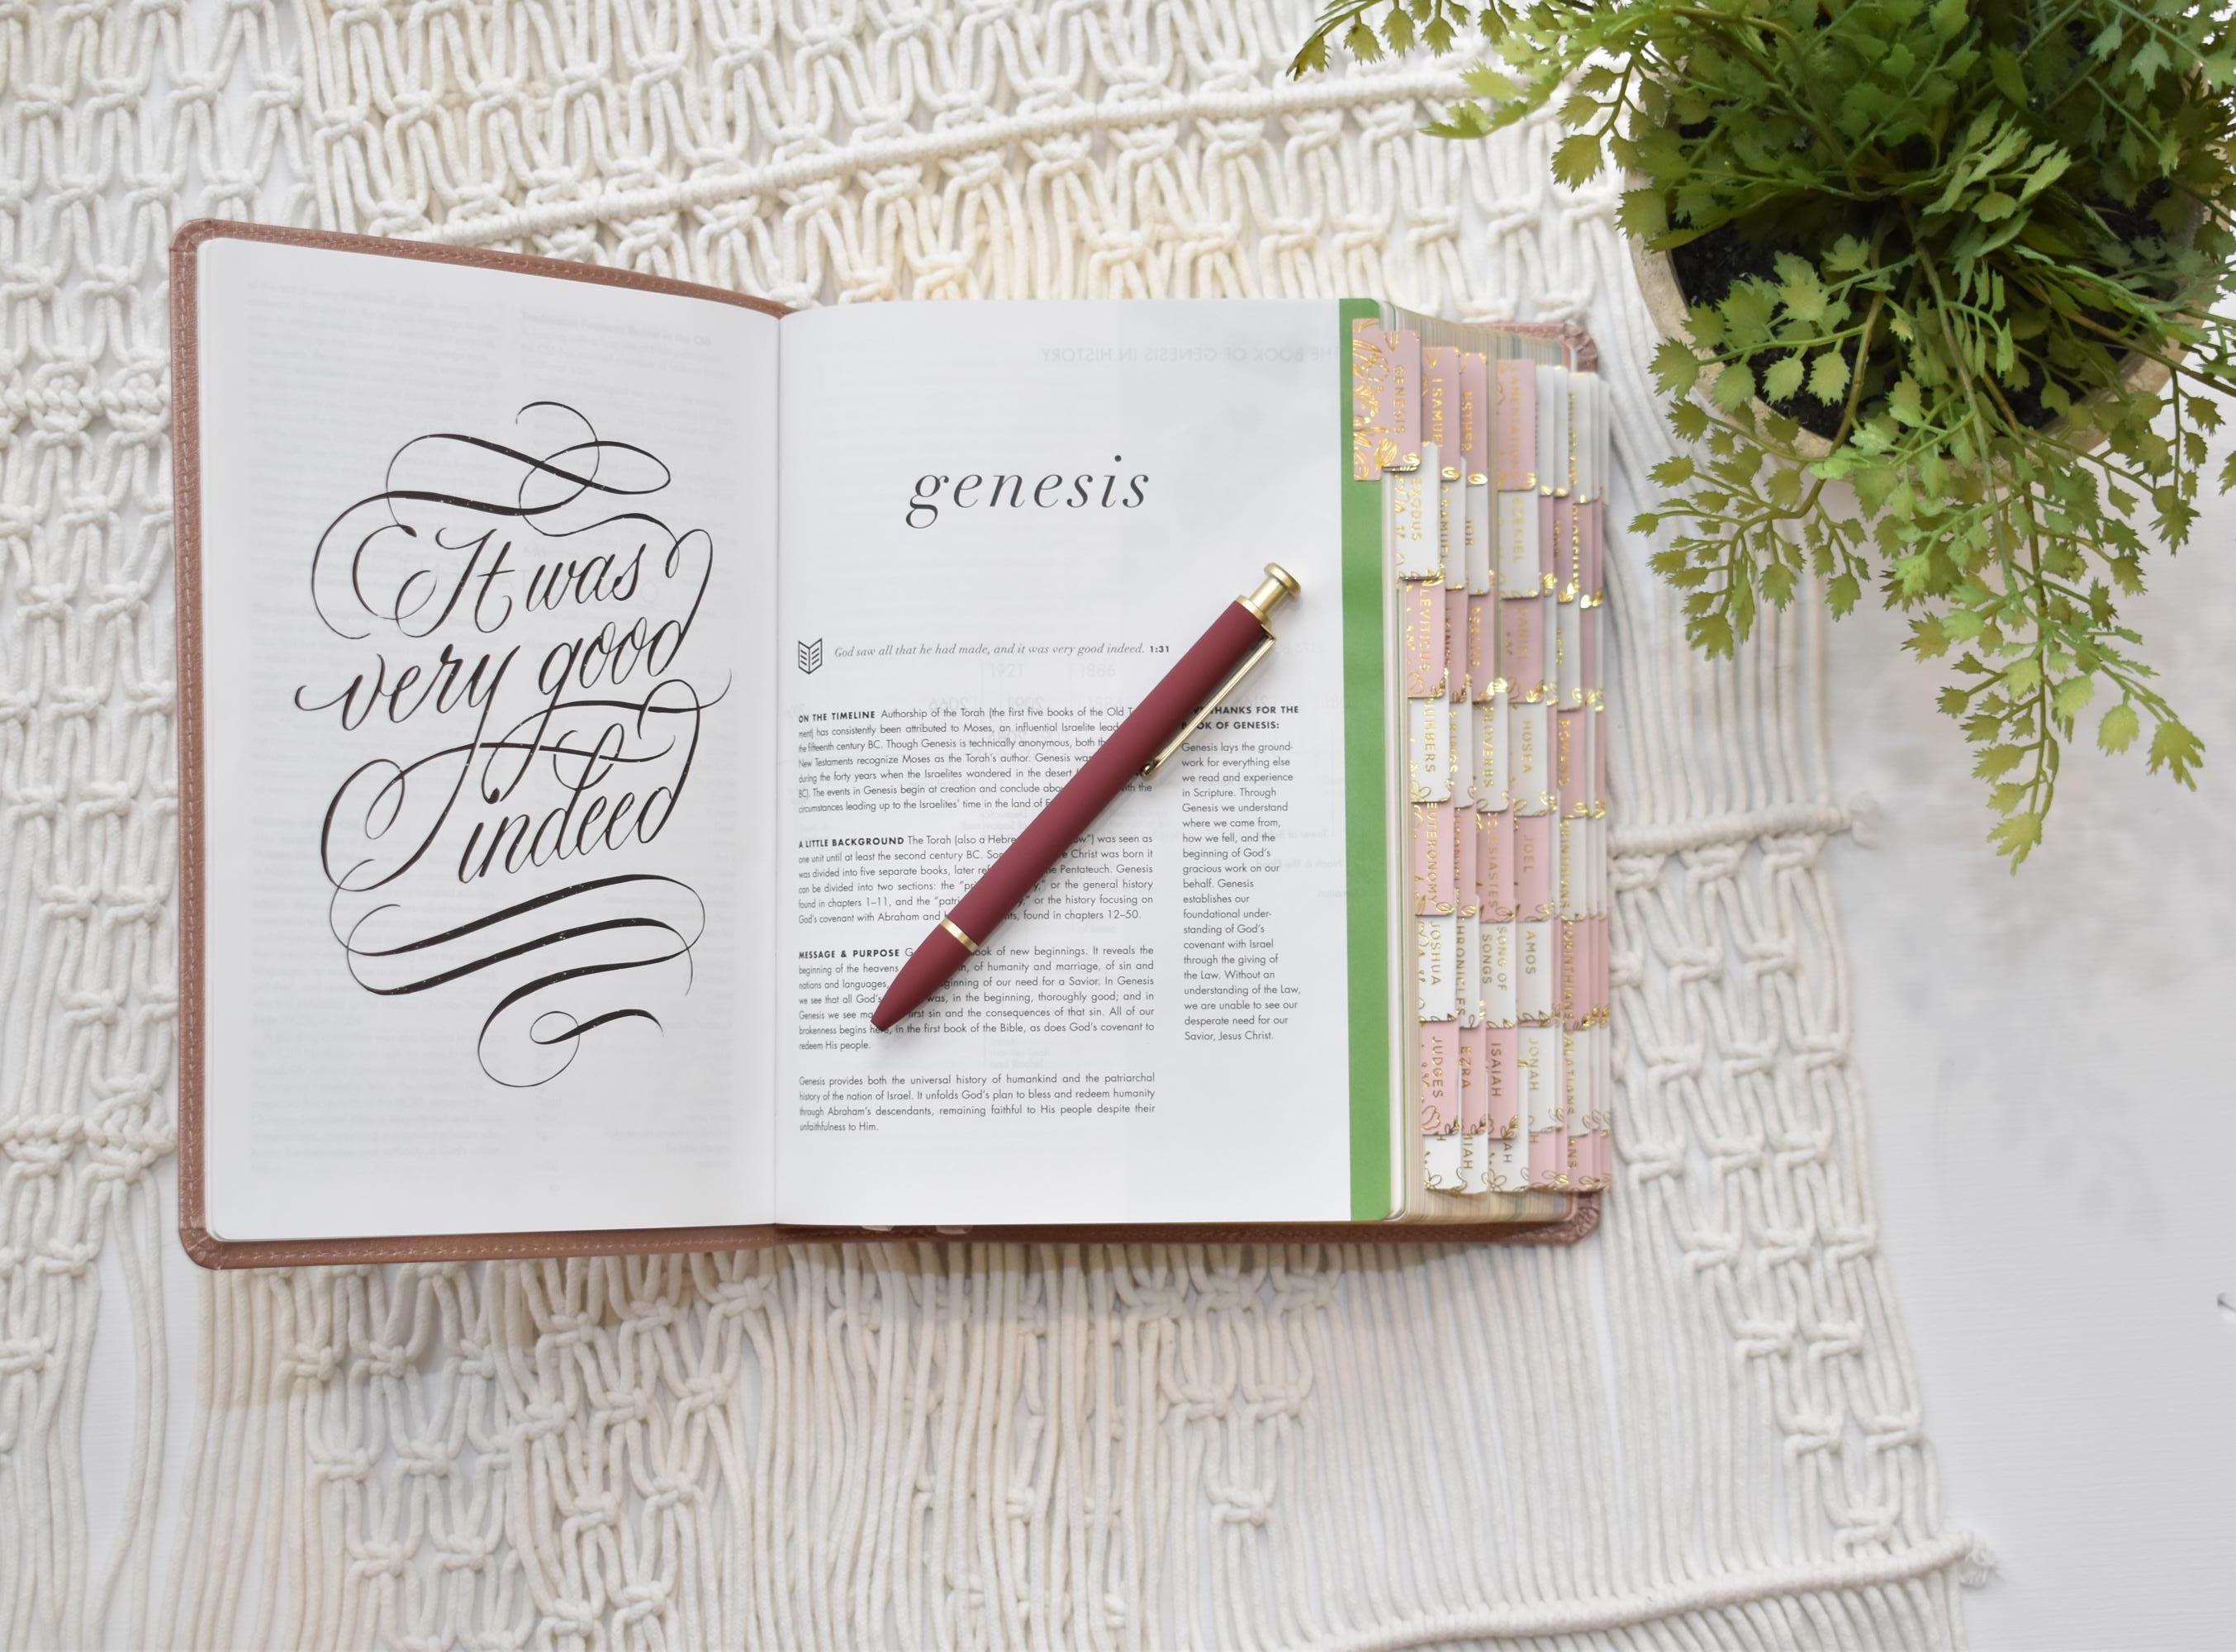 It was
very good
indeed
genesis
God saw all that he had made, and it was very good indeed. 1:31
ON THE TIMELINE Authorship of the Torah (the first five books of the Old
has consistently been attributed to Moses, an influential Israelite
the fifteenth century BC. Though Genesis is technically anonymous, both
New Testaments recognize Moses as the Torah's author. Genesis
during the forty years when the Israelites wandered in the desert
BC). The events in Genesis begin at creation and conclude the
circumstances leading up to the Israelites' time in the land of
A LITTLE BACKGROUND The Torah (also a was seen as
one unit until at least the second century BC. Christ was born it
was divided into five separate books, later Pentateuch. Genesis
can be divided into two sections: the or the general history
found in chapters 1–11, and the or the history focusing on
God's covenant with Abraham and found in chapters 12–50.
MESSAGE & PURPOSE of new beginnings. It reveals the
beginning of the heavens of humanity and marriage, of sin and
nations and languages, of our need for a Savior. In Genesis
we see that all God's was, in the beginning, thoroughly good; and in
Genesis we see sin and the consequences of that sin. All of our
brokenness begins here, in the first book of the Bible, as does God's covenant to
redeem His people.
Genesis provides both the universal history of humankind and the patriarchal
history of the nation of Israel. It unfolds God's plan to bless and redeem humanity
through Abraham's descendants, remaining faithful to His people despite their
unfaithfulness to Him.
THANKS FOR THE
OF GENESIS:
Genesis lays the ground-
work for everything else
we read and experience
in Scripture. Through
Genesis we understand
where we came from,
how we fell, and the
beginning of God's
gracious work on our
behalf. Genesis
establishes our
foundational under-
standing of God's
covenant with Israel
through the giving of
the Law. Without an
understanding of the Law,
we are unable to see our
desperate need for our
Savior, Jesus Christ.
GENESIS
EXODUS
LEVITICUS
JOSHUA
JUDGES
ESTHER
JOB
PSALMS
PROVERBS
EZRA
SONG OF
SONGS
ISAIAH
EZEKIEL
DANIEL
HOSEA
JOEL
AMOS
JONAH